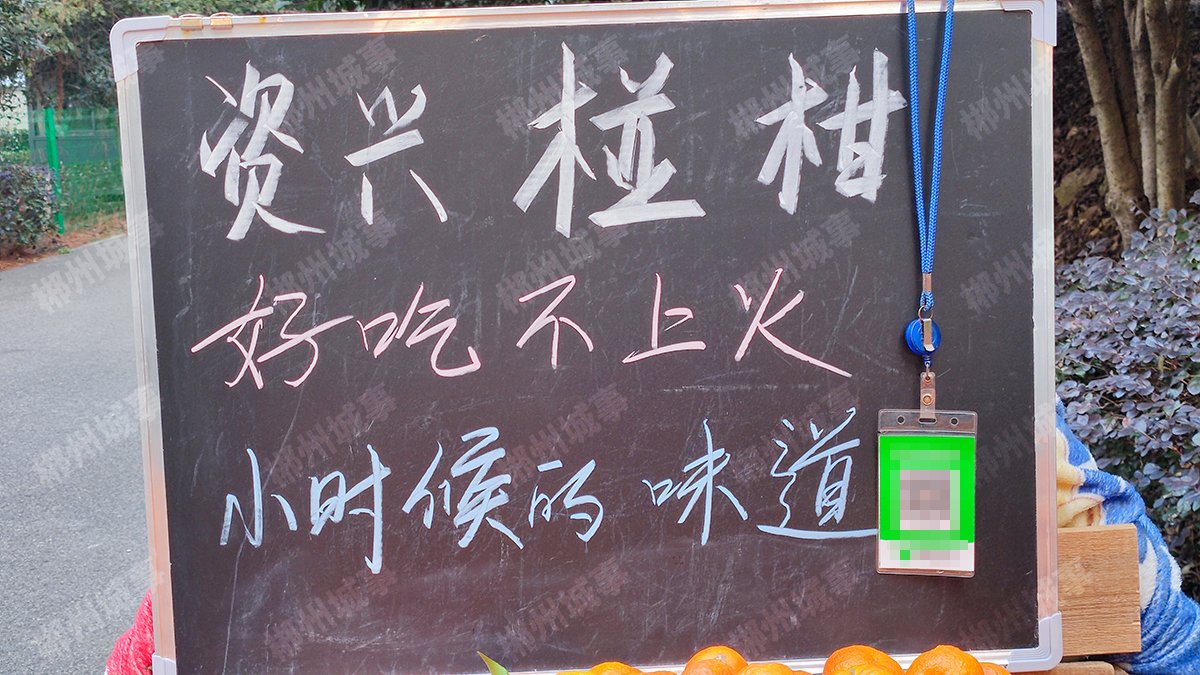 资兴椪柑
好吃不上火
小时候的味道
郴州城事